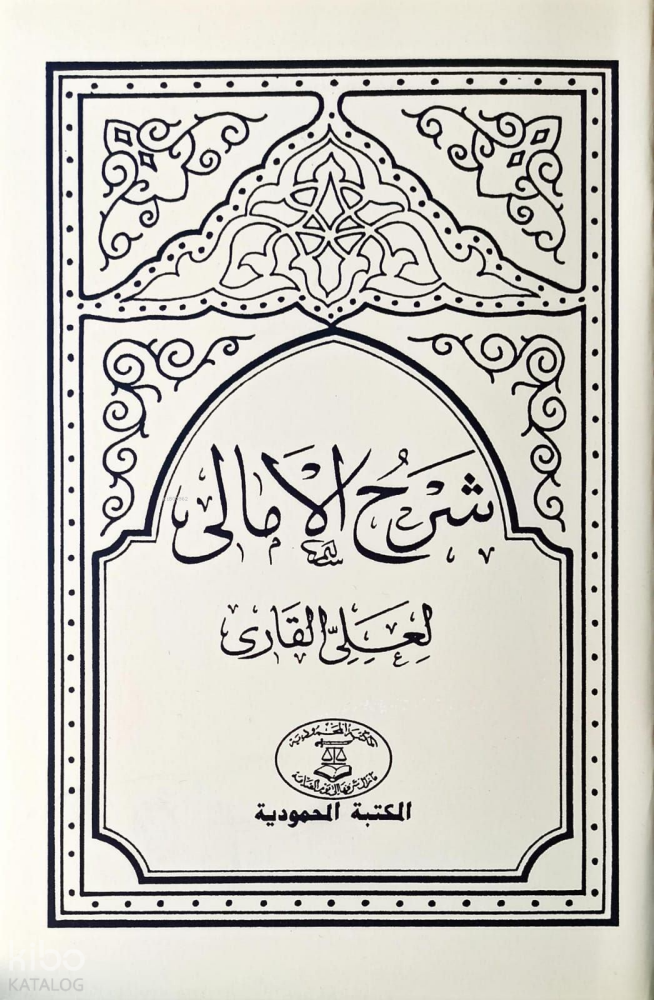 شَرْحُ الْأَمَالِى
لِعَلِىِّ الْقَارِى
المكتبة المحمودية
kibo
KATALOG